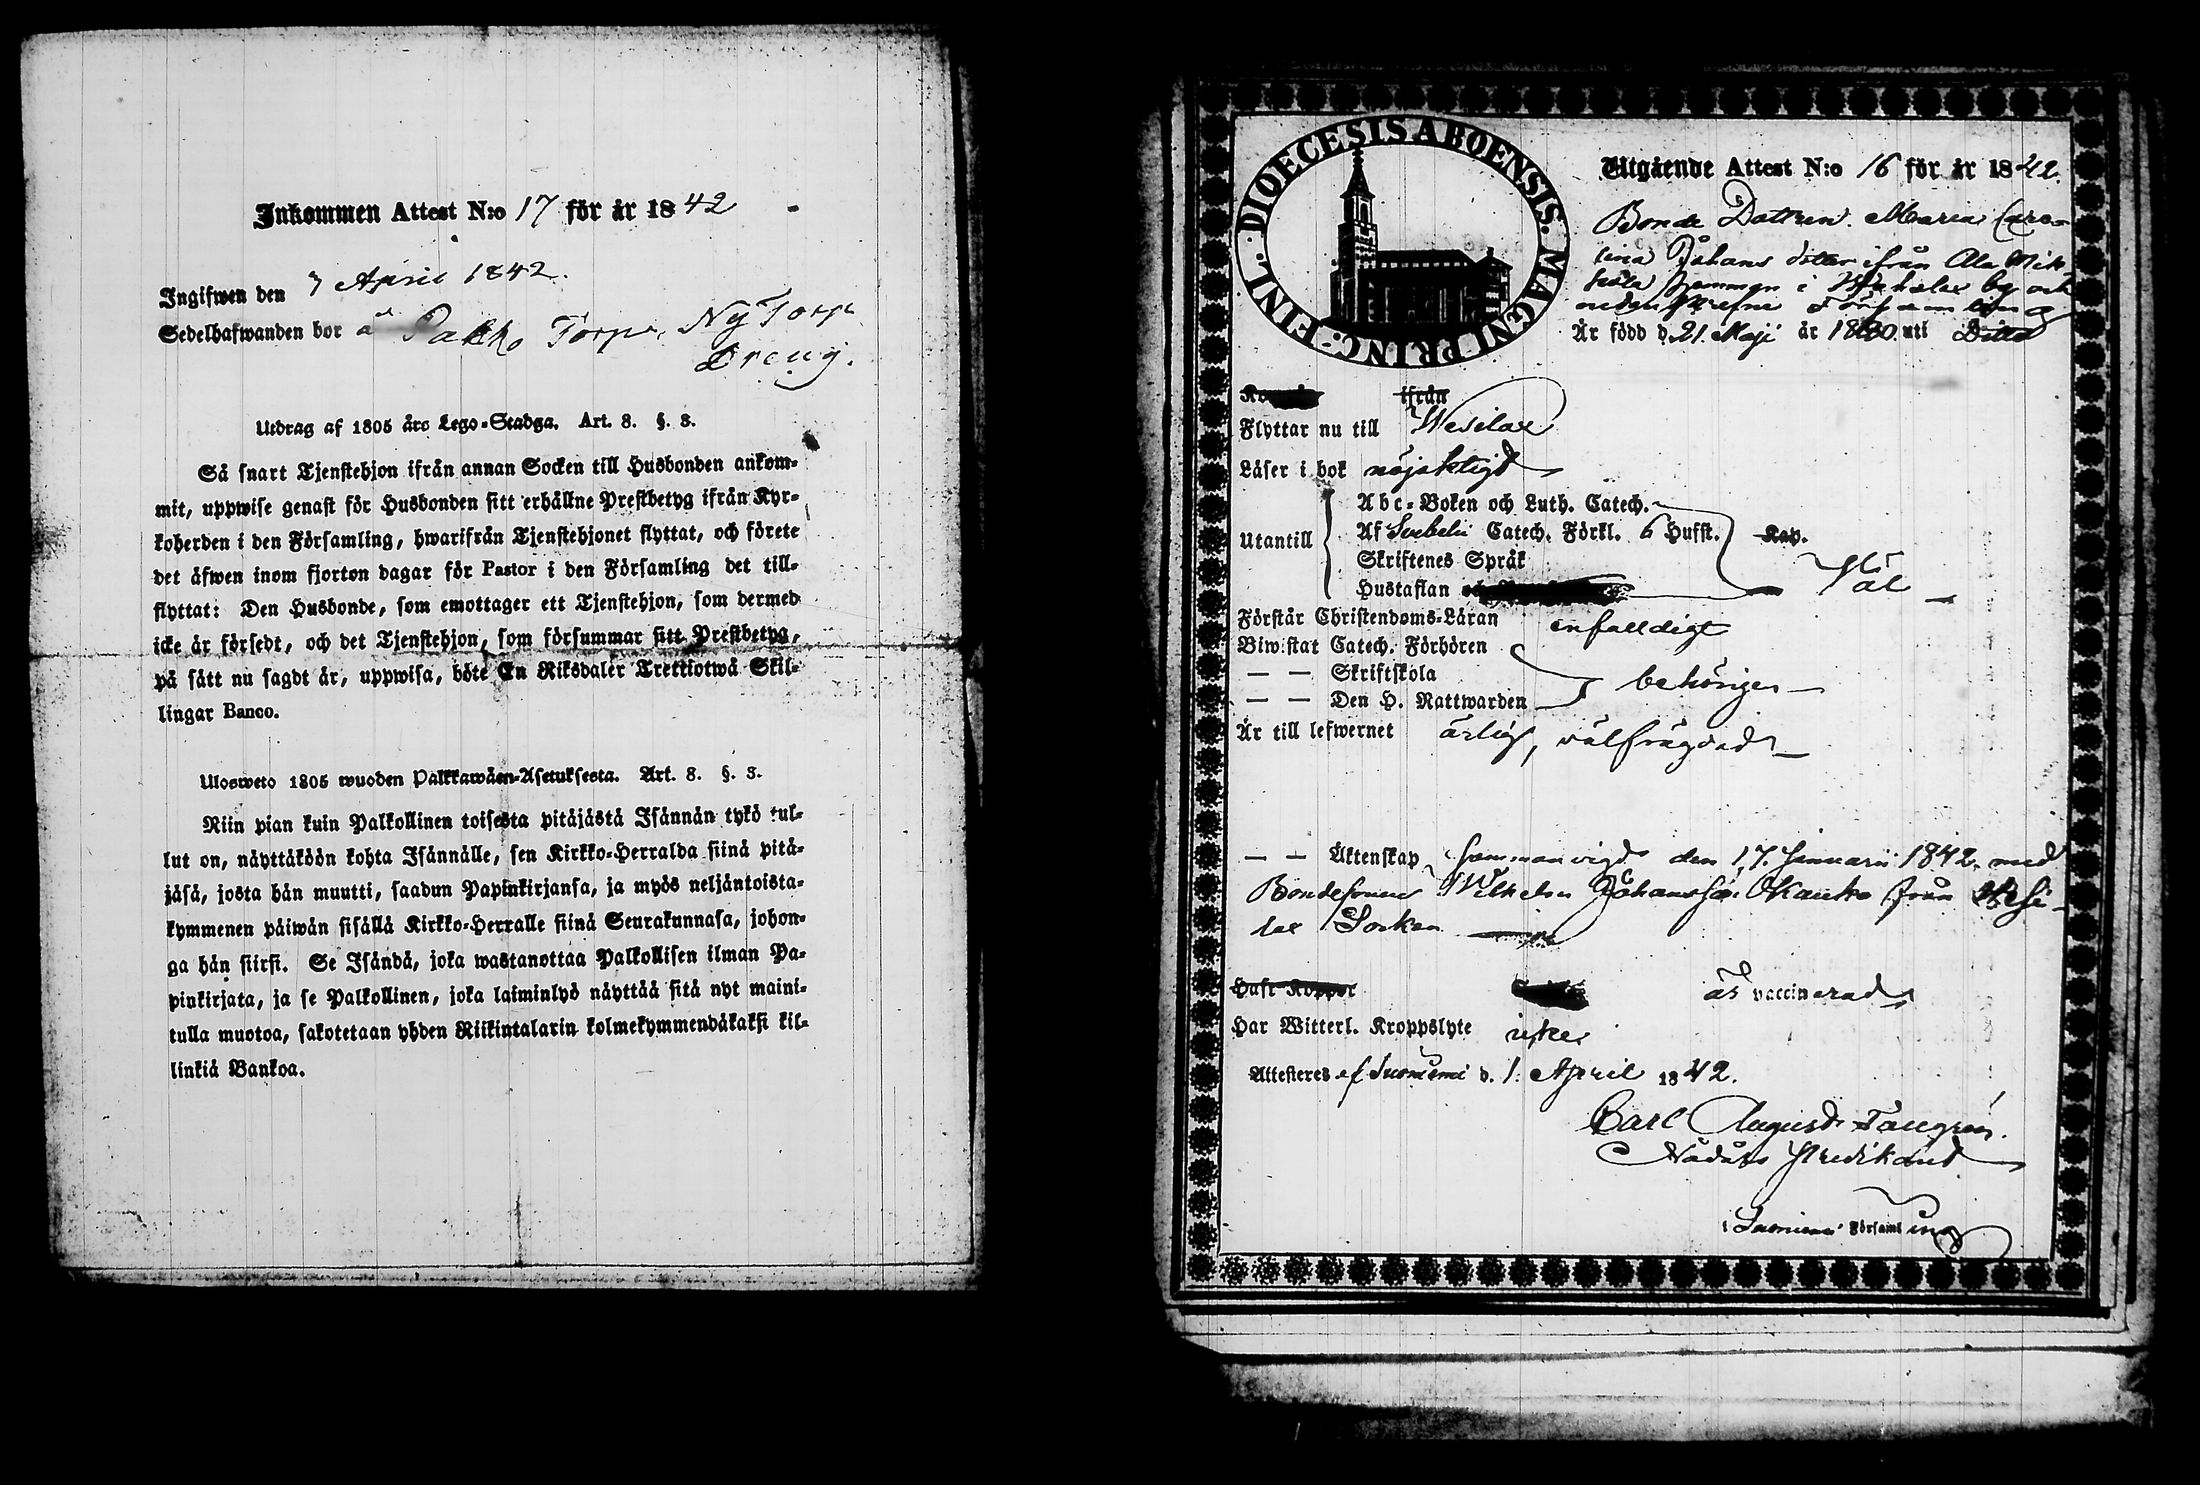 Inkommen Attest N:o 17 för år 1842
Ingifwen den 7 April 1842.
Sedelhafwanden bor å Pakko Torp, Ny Torp
Dreng.
Utdrag af 1805 års Lego-Stadga. Art. 8. §. 3.
Så snart Tjenstehjon ifrån annan Socken till Husbonden ankom-
mit, uppwise genast för Husbonden sitt erhållne Prestbetyg ifrån Kyr-
koherden i den Församling, hwarifrån Tjenstehjonet flyttat, och förete
det äfwen inom fjorton dagar för Pastor i den Församling det till-
flyttat: Den Husbonde, som emottager ett Tjenstehjon, som dermed
icke är försedt, och det Tjenstehjon, som försummar sitt Prestbetyg,
på sätt nu sagdt är, uppwisa, böte En Riksdaler Trettiotwå Skil-
lingar Banco.
Ulosweto 1805 wuoden Palkkawäen-Asetuksesta. Art. 8. §. 3.
Niin pian kuin Palkollinen toisesta pitäjästä Isännän tykö tul-
lut on, näyttäköön kohta Isännälle, sen Kirkko-Herralda siinä pitä-
jäsä, josta hän muutti, saadun Papinkirjansa, ja myös neljäntoista-
kymmenen päiwän sisällä Kirkko-Herralle siinä Seurakunnasa, johon-
ga hän siirsi. Se Isändä, joka wastanottaa Palkollisen ilman Pa-
pinkirjata, ja se Palkollinen, joka laiminlyö näyttää sitä nyt maini-
tulla muotoa, sakotetaan yhden Riikintalarin kolmekymmendäkaksi kil-
linkiä Bankoa.
DIOECESIS ABOENSIS. MAGNI PRINC: FINL.
Utgående Attest N:o 16 för år 1842.
Bonde Dottren Maria Caro-
lina Johans dotter ifrån Ala
hemman i by och
nedanskrefne Församling
Är född d. 21. Maji år 1820. uti Ditto
ifrån
Flyttar nu till Wesilax
Läser i bok nöjaktigt
Utantill
Abc-Boken och Luth. Catech.
Af Svebelii Catech. Förkl. 6 Hufst. Kap.
Skriftenes Språk
Hustaflan
Väl
Förstår Christendoms-Läran enfaldigt
Biwistat Catech. Förhören
— — Skriftskola
— — Den H. Nattwarden
behörigen
Är till lefwernet ärlig, välfrägdad
— — Äktenskap sammanvigd den 17. Januarii 1842. med
Bondesonen Wilhelm Johansson från Wesi-
lax Socken
Haft Koppor
är vaccinerad
Har Witterl. Kroppslyte icke
Attesteres af Suoniemi d. 1. April 1842.
Carl August
Nådårs Predikant
i Suoniemi Församling